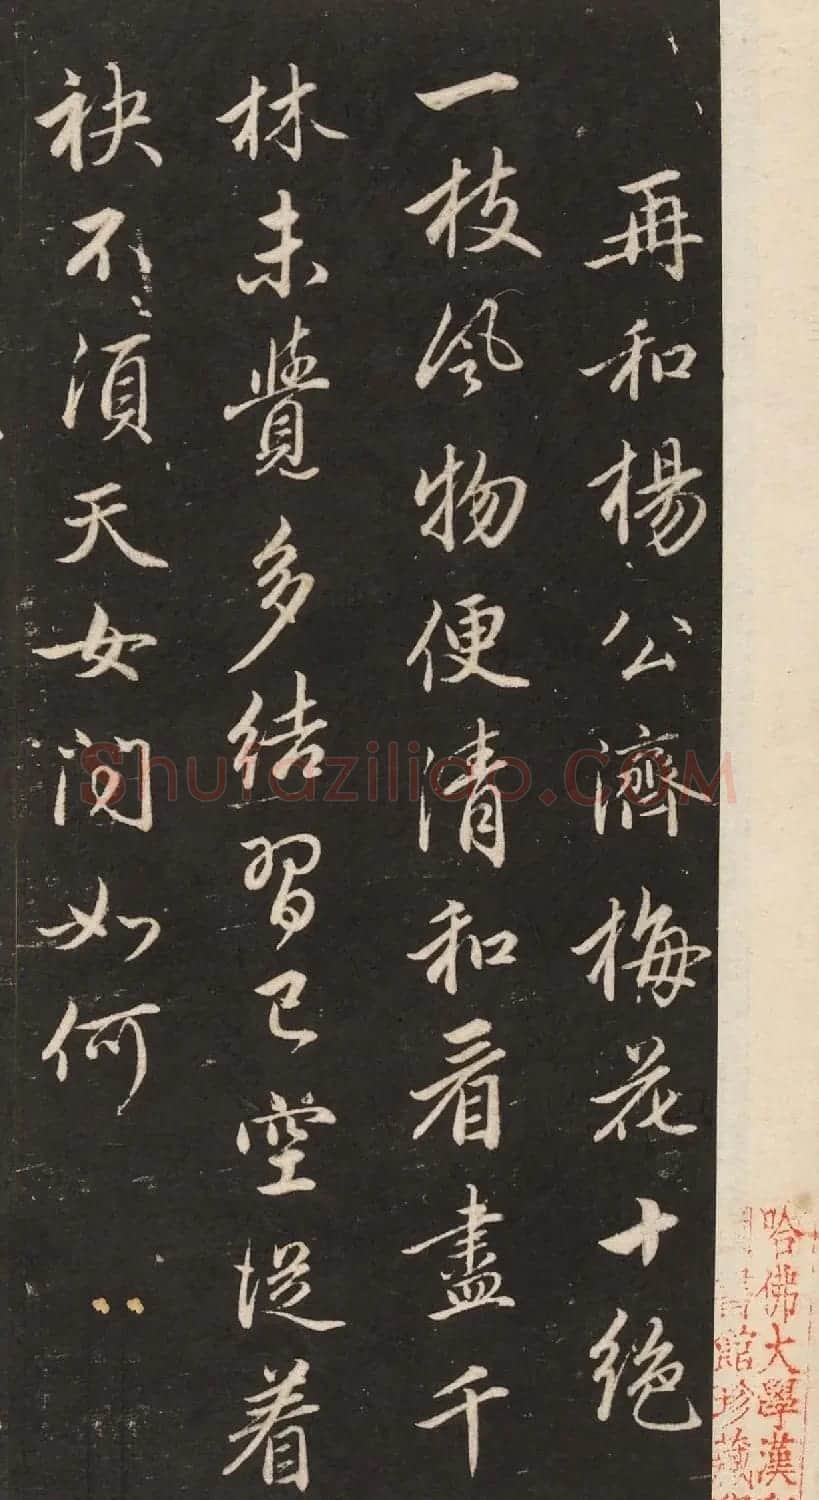 再和楊公濟梅花十絕
一枝風物便清和看盡千
林未覺多結習已空從着
袂不須天女問如何
哈佛大學漢和
圖書館珍藏
Shufaziliao.COM